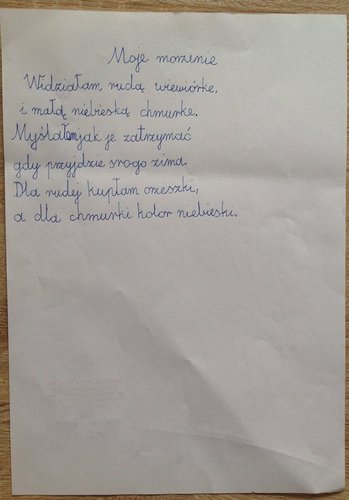 Moje marzenie
Widziałam rudą wiewiórkę,
i małą niebieską chmurkę.
Myślałam jak je zatrzymać
gdy przyjdzie sroga zima.
Dla rudej kupłam orzeszki,
a dla chmurki kolor niebieski.